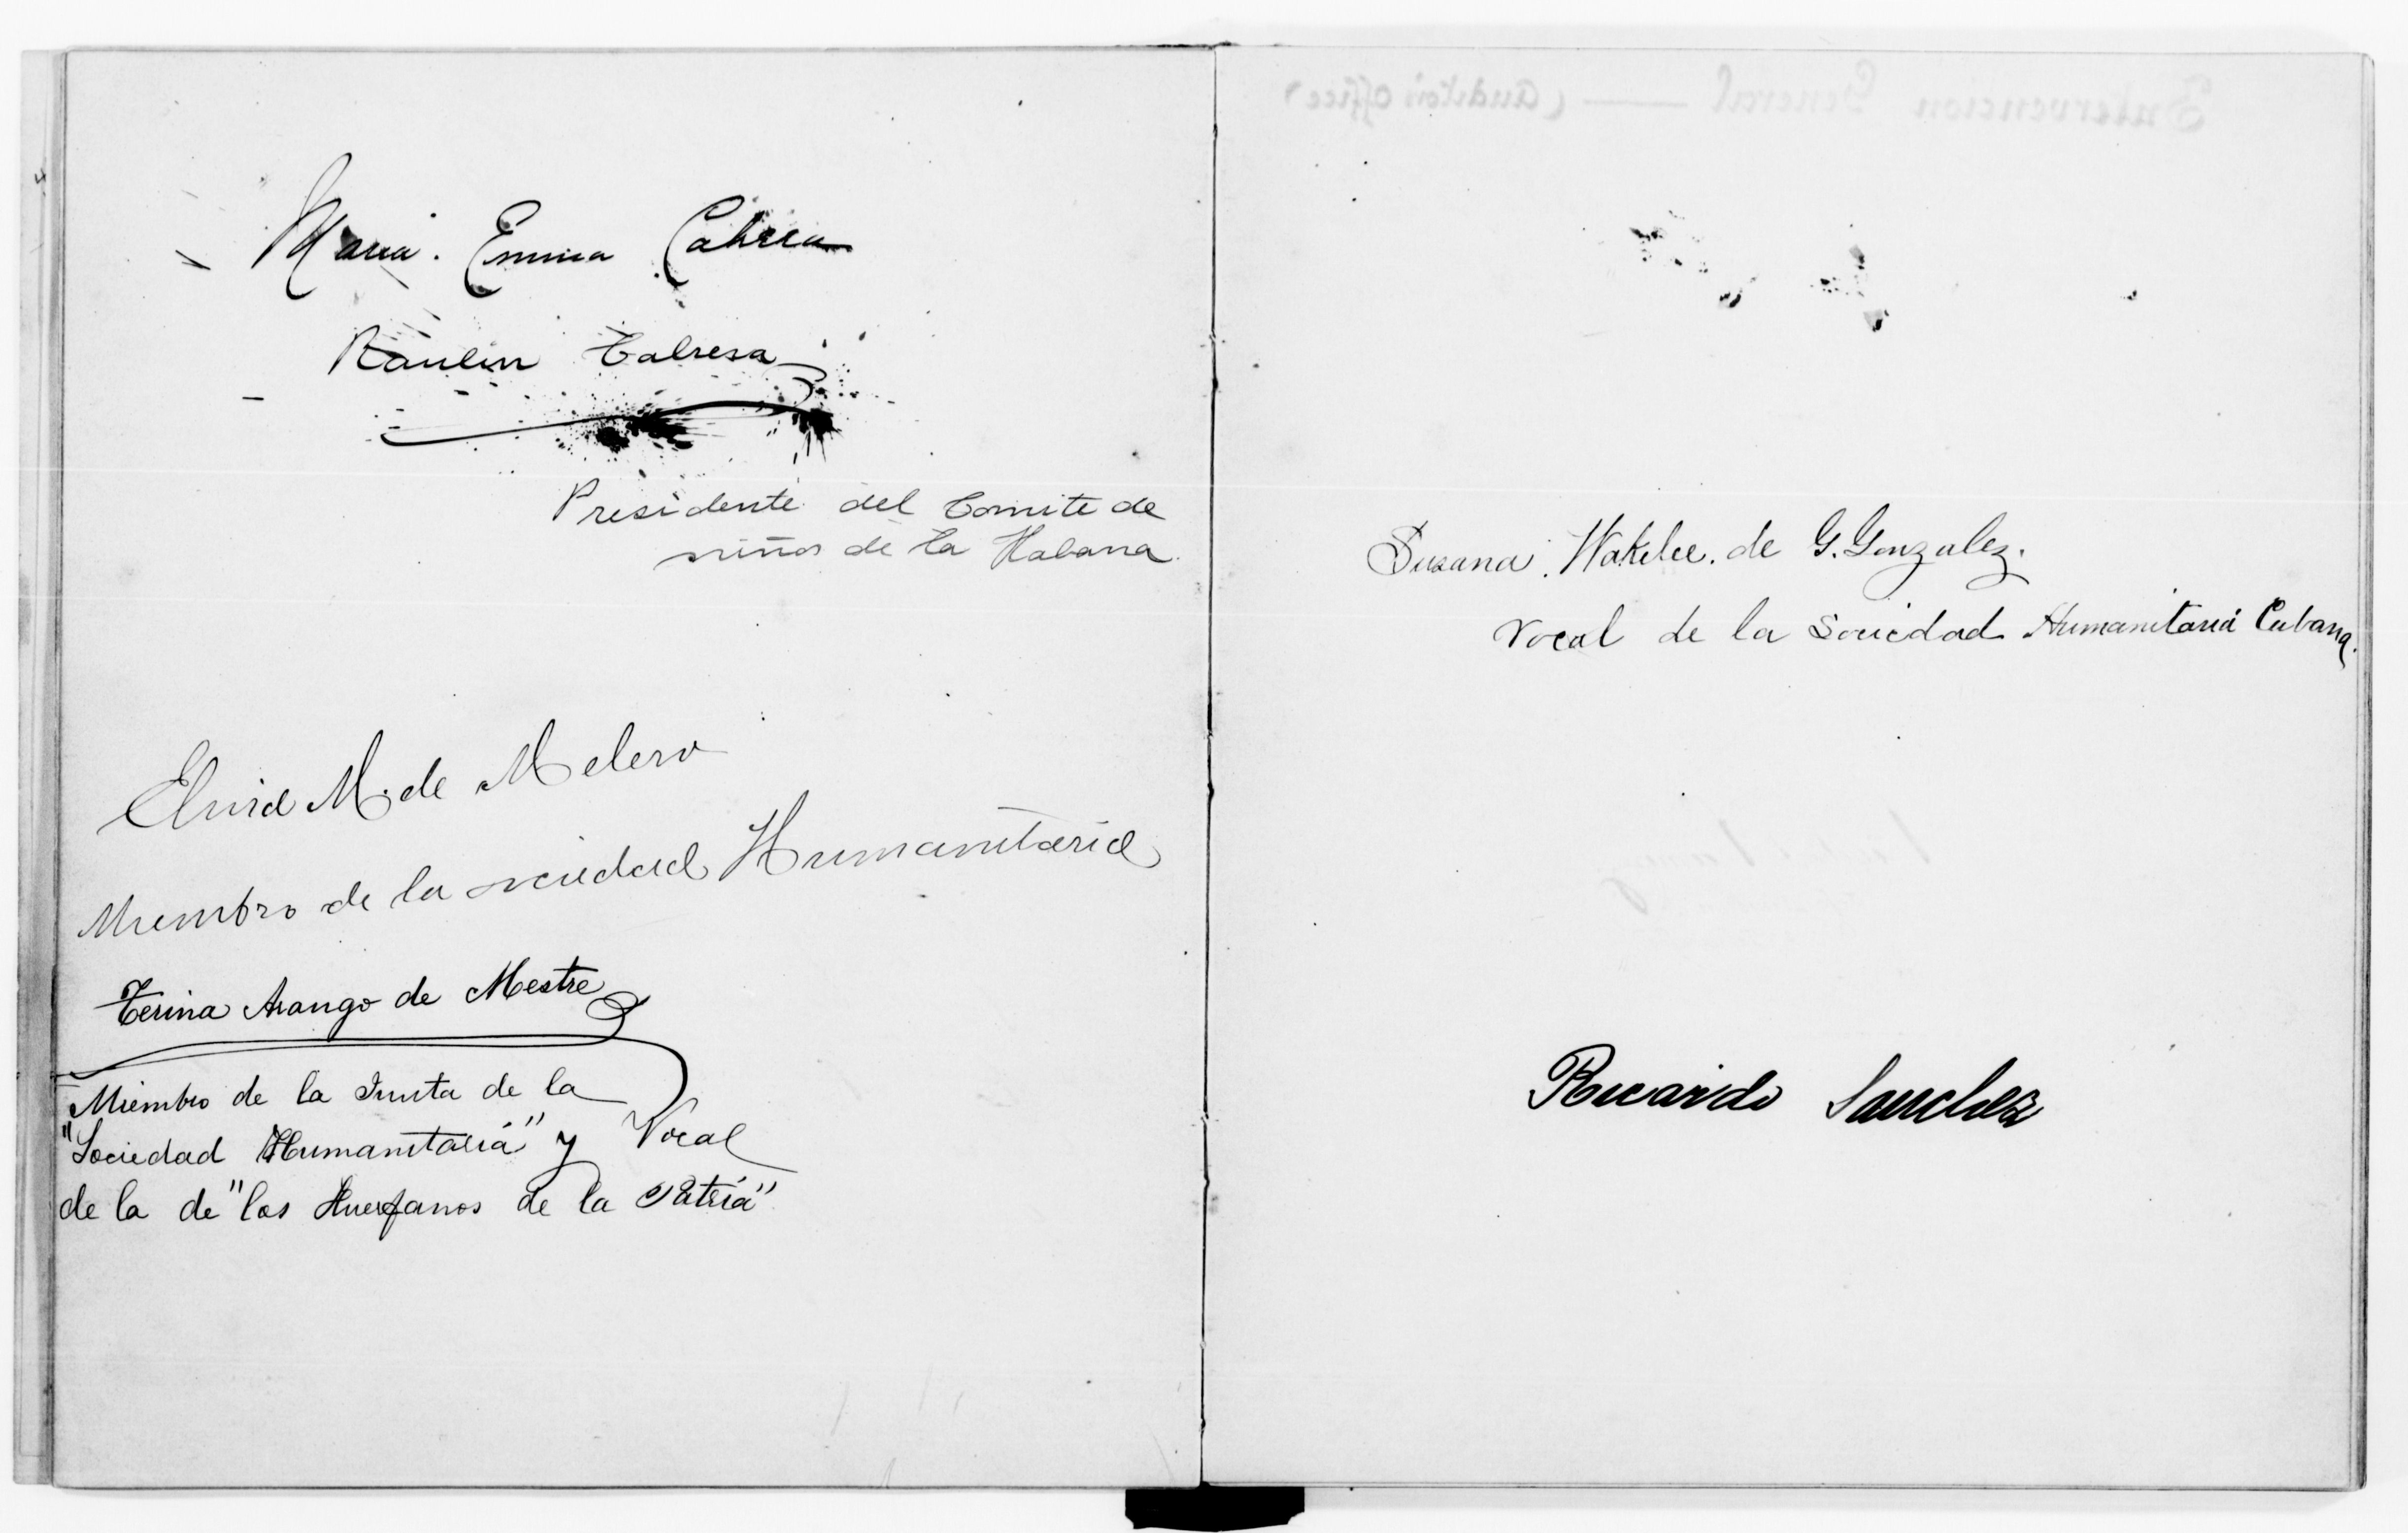 Maria. Emma Cabrera
Raulin Cabrera
Presidente del Comite de
niños de la Habana
Elvira M. de Melero
Miembro de la sociedad Humanitaria
Terina Arango de Mestre
Miembro de la Junta de la
"Sociedad Humanitaria" y Vocal
de la de "los Huerfanos de la Patria"
Intervencion General — (Auditor's Office)
Susana. Wakelee. de G. Gonzalez.
Vocal de la Sociedad Humanitaria Cubana.
Ricardo Sanchez